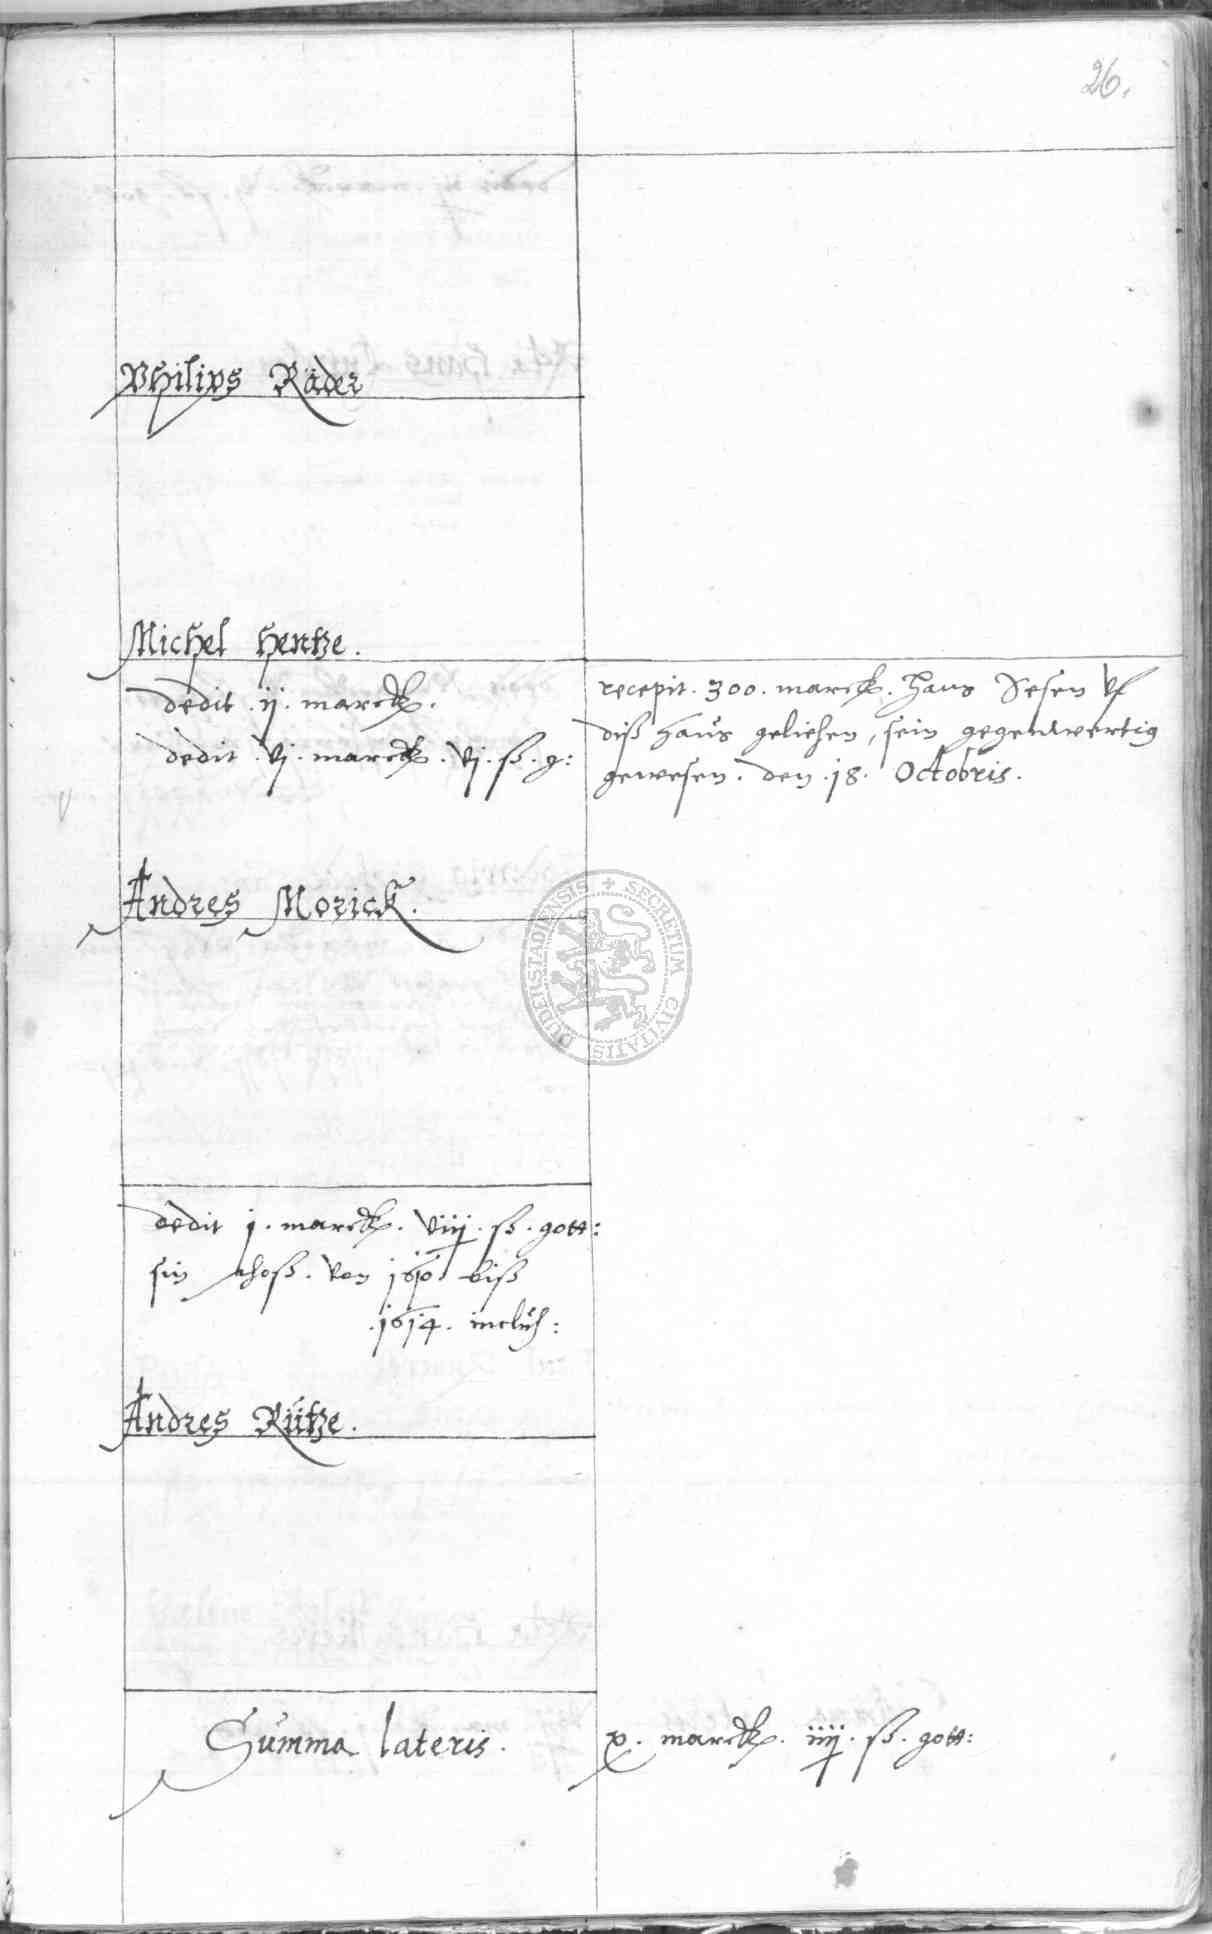 26.
Philips Räder
Michel Hentze.
dedit . ij . marck .
dedit . vj . marck . vj . ß . g :
recepit . 300 . marck . Hans Sesen vf
diß haus geliehen, sein gegenwertig
gewesen . den . 18 . Octobris .
Andres Morick .
SECRETUM CIVITATIS DUDERSTADIENSIS
dedit j . marck . viiij . ß . gott :
sin schoß . von 1610 biß
. 1614 . inclus :
Andres Rütze .
Summa lateris .
x . marck . iiij . ß . gott :